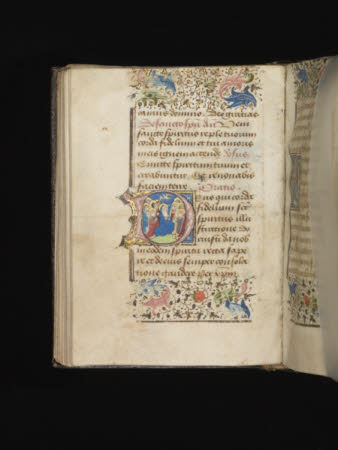 camus domino. Deo gratias
De sancto spũ añ Veni
sancte spiritus reple tuorum
corda fidelium et tui amoris
in eis ignem accende Vsus
Emitte spiritum tuum et
creabuntur Et renouabis
faciem terre Oratio
Deus qui corda
fidelium sc̃i
spiritus illu
stratione do
cuisti da nob
in eodem spiritu recta sape
re et de eius semper consola
tione gaudere Per xp̃m